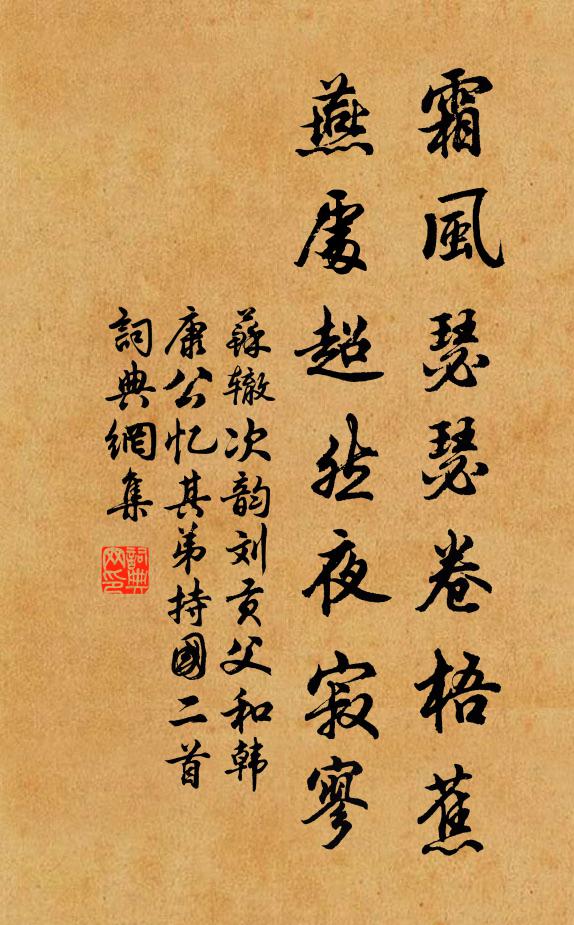 霜風瑟瑟卷梧蕉
燕處超然夜寂寥
蘇辙次韵刘贡父和韩
康公忆其弟持國二首
詞典網集
詞典網印